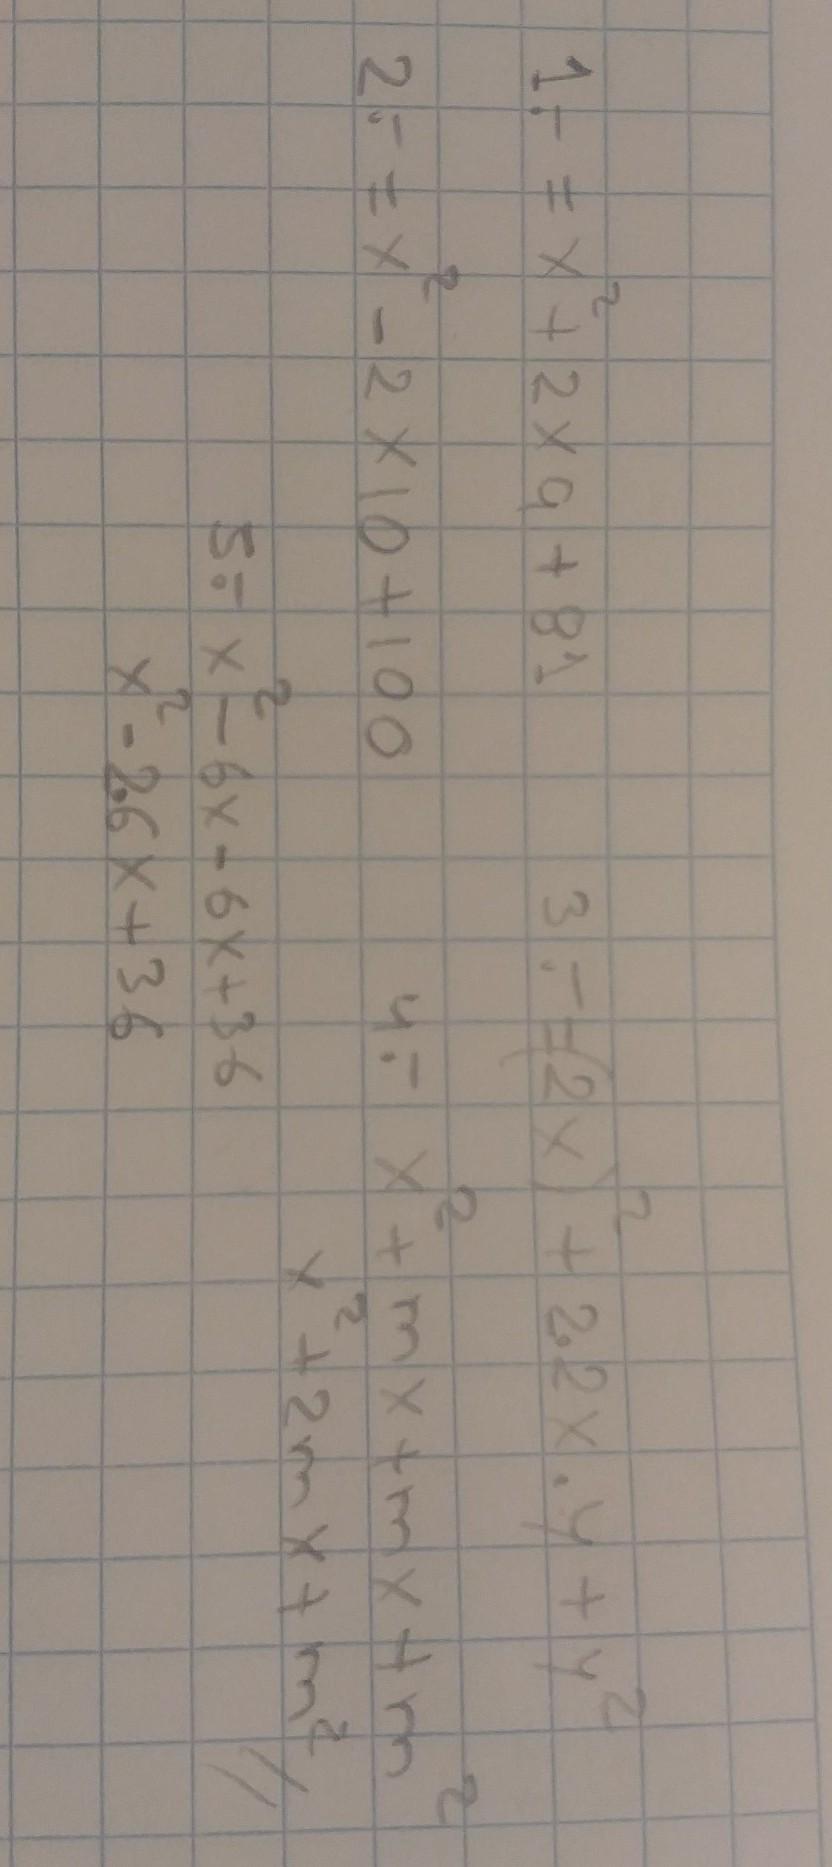 1.- = x² + 2x9 + 81
2.- = x² - 2x10 + 100
3.- = (2x)² + 2.2x.y + y²
4.- x² + mx + mx + m²
x² + 2mx + m² //
5.- x² - 6x - 6x + 36
x² - 2.6x + 36